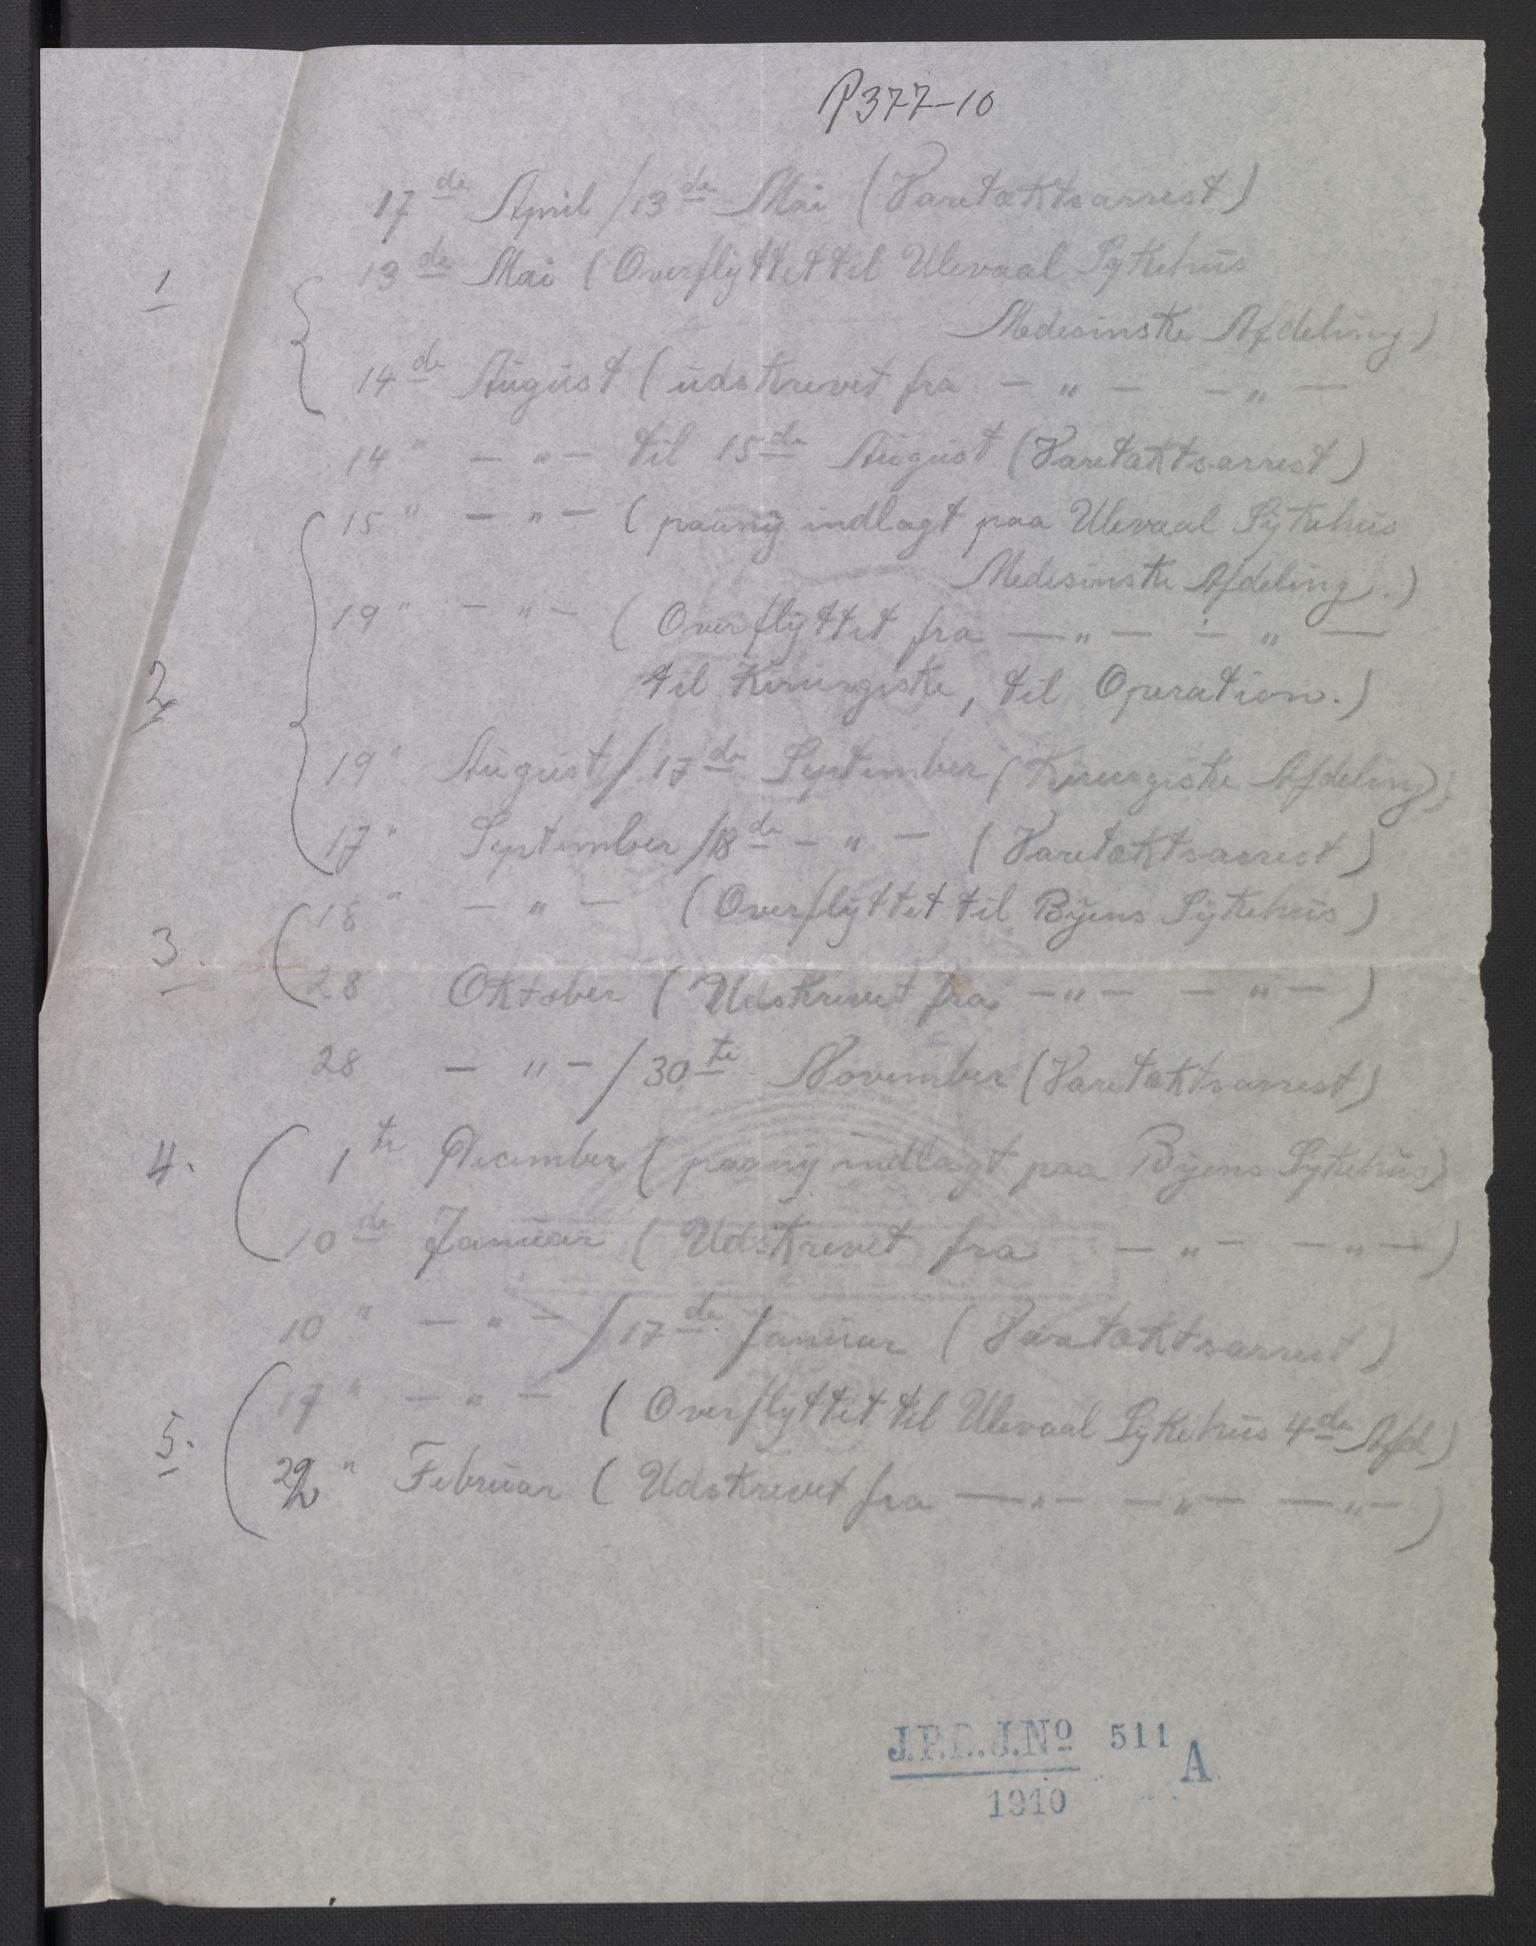 P377-10
17de April /13de Mai (Varetæktsarrest)
1 13de Mai (Overflyttet til Ulevaal Sykehus
Medesinske Afdeling.)
14de August (udskrevet fra — „ — — „ —
14 " — „ — til 15de August (Varetæktsarrest)
15 " — „ — (paany indlagt paa Ulevaal Sykehus
Medesinske Afdeling.)
19 " — „ — (Overflyttet fra — „ — — „ —
2 til Kirurgiske, til Operation.)
19 " August / 17de September (Kirurgiske Afdeling)
17 " September /18de — „ — (Varetæktsarrest)
18 " — „ — (Overflyttet til Byens Sykehus)
3. 28 Oktober (Udskrevet fra — „ — — „ —)
28 — „ — / 30te November (Varetæktsarrest)
4. 1te December (paany indlagt paa Byens Sykehus)
10de Januar (Udskrevet fra — „ — — „ —)
10 " — „ — / 17de Januar (Varetæktsarrest)
17 " — „ — (Overflyttet til Ulevaal Sykehus 4de Afd)
5. 22 " Februar (Udskrevet fra — „ — — „ — — „ —)
J.P.D.J.No 511 A
1910